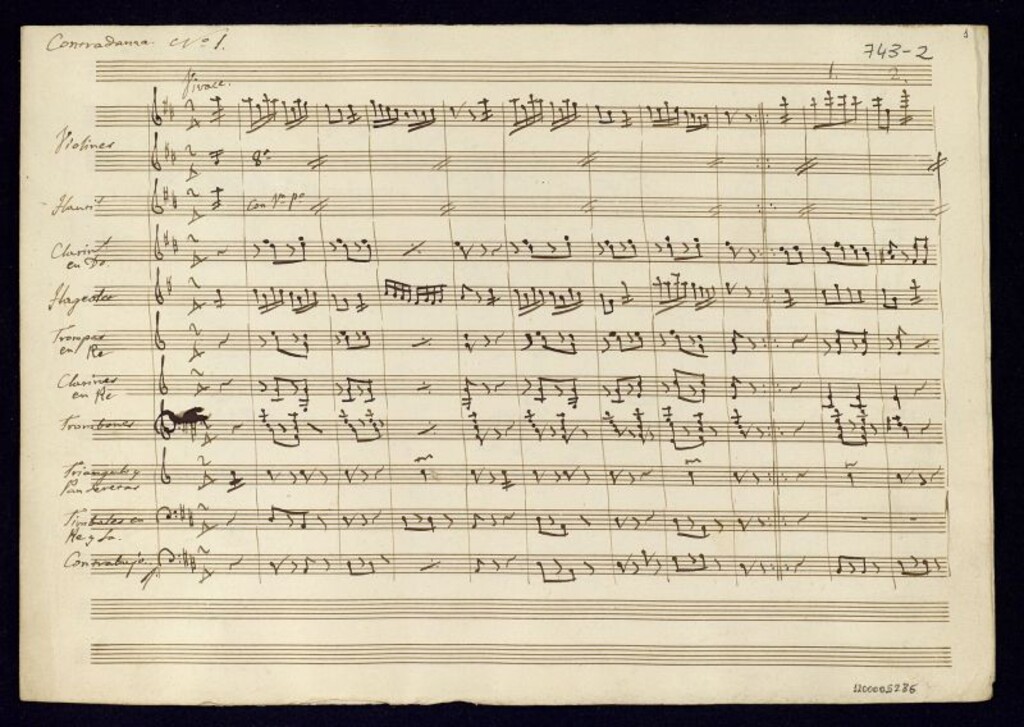 Contradanza Nº 1.
743-2
1. 2.
Vivace.
Violines
8ª
Flautin
Con Vº pº
Clarinte
en Do.
Flageolee
Trompas
en Re
Clarines
en Re
Trombones
Triangulo y
Panderetas
Timbales en
Re y La.
Contrabajo
1200005286